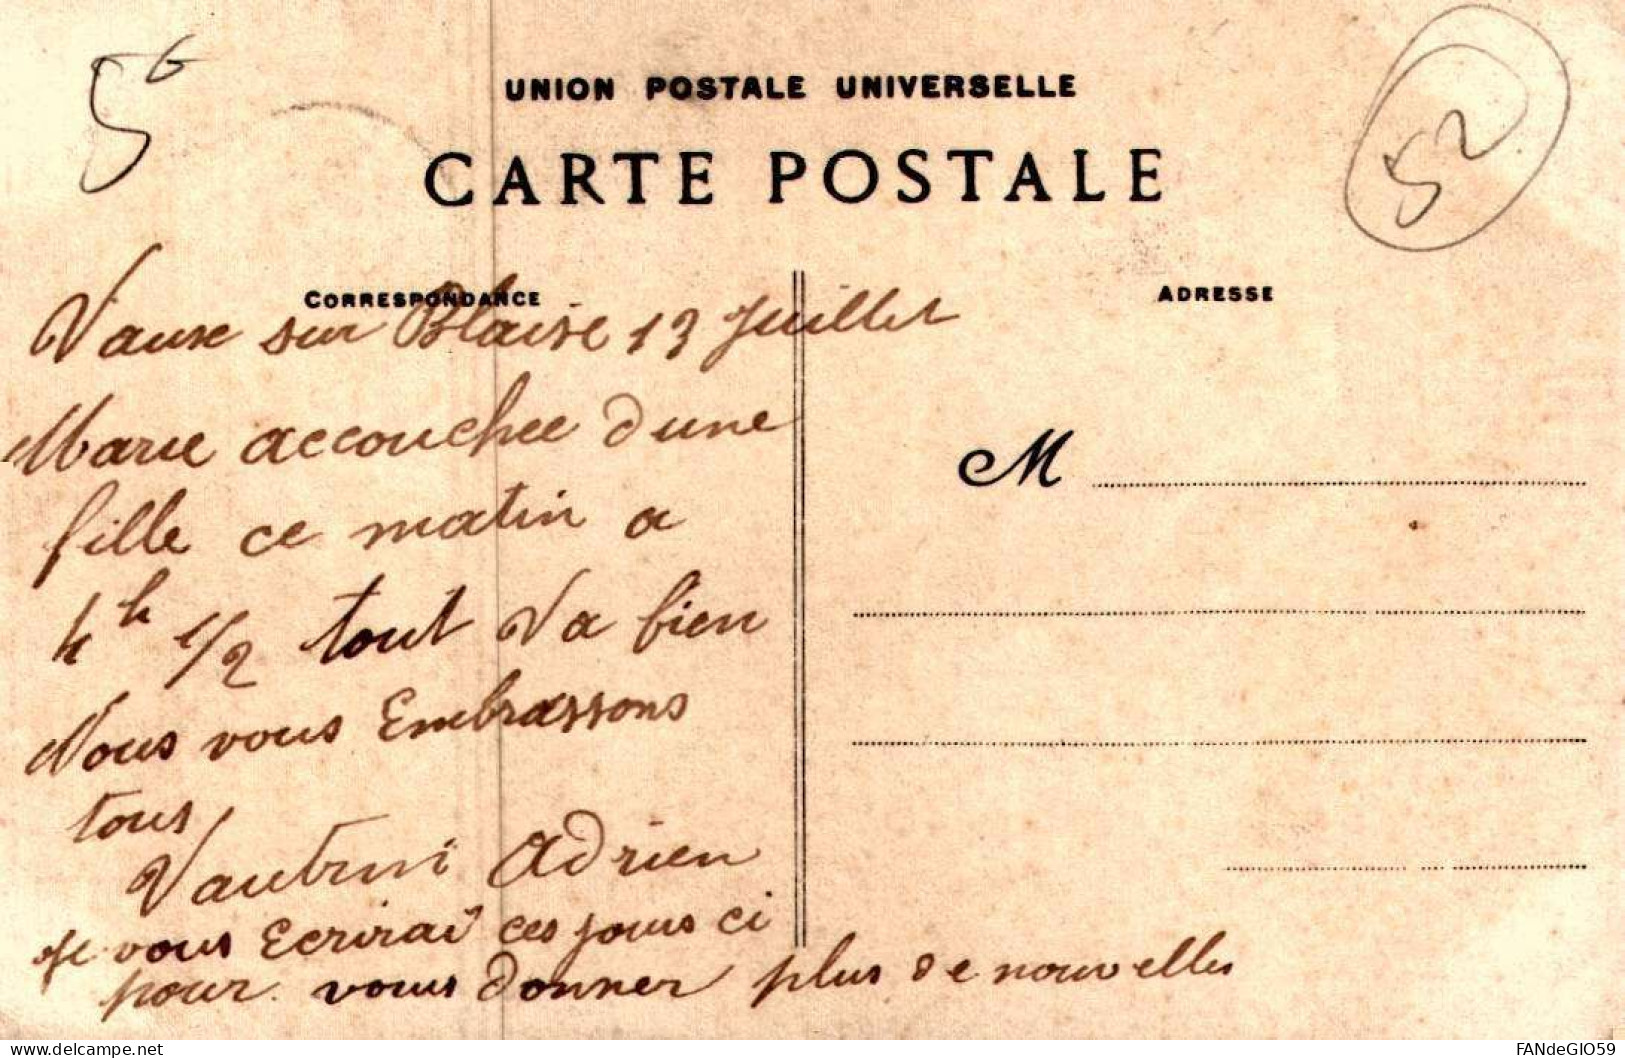 5 G
52
UNION POSTALE UNIVERSELLE
CARTE POSTALE
CORRESPONDANCE
ADRESSE
Vaux sur Blaise 13 Juillet
Marie accouchee dune
fille ce matin a
4h 1/2 tout Va bien
Nous vous Embrassons
tous
Adrien
Je vous Ecrirai ces jours ci
pour vous donner plus de nouvelles
M
delcampe.net
FANdeGIO59